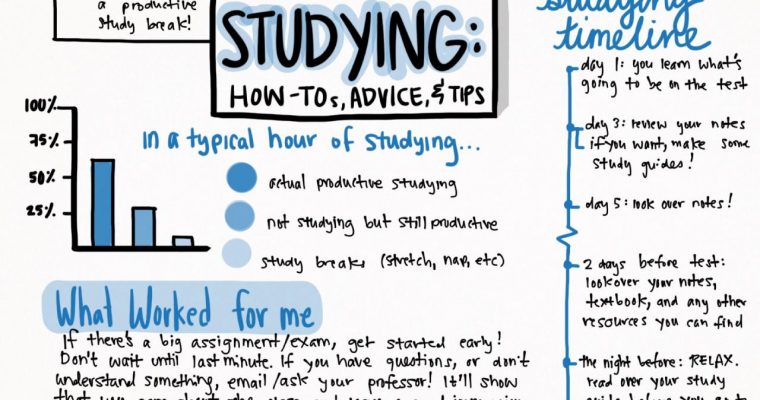 a productive
study break!
STUDYING:
HOW-TOs, ADVICE, & TIPS
studying
timeline
100%
75%
50%
25%
in a typical hour of studying...
actual productive studying
not studying but still productive
study breaks (stretch, nap, etc)
day 1: you learn what's
going to be on the test
day 3: review your notes
if you want, make some
study guides!
day 5: look over notes!
2 days before test:
look over your notes,
textbook, and any other
resources you can find
the night before: RELAX.
read over your study
What Worked for me
If there's a big assignment/exam, get started early!
Don't wait until last minute. If you have questions, or don't
understand something, email/ask your professor! It'll show